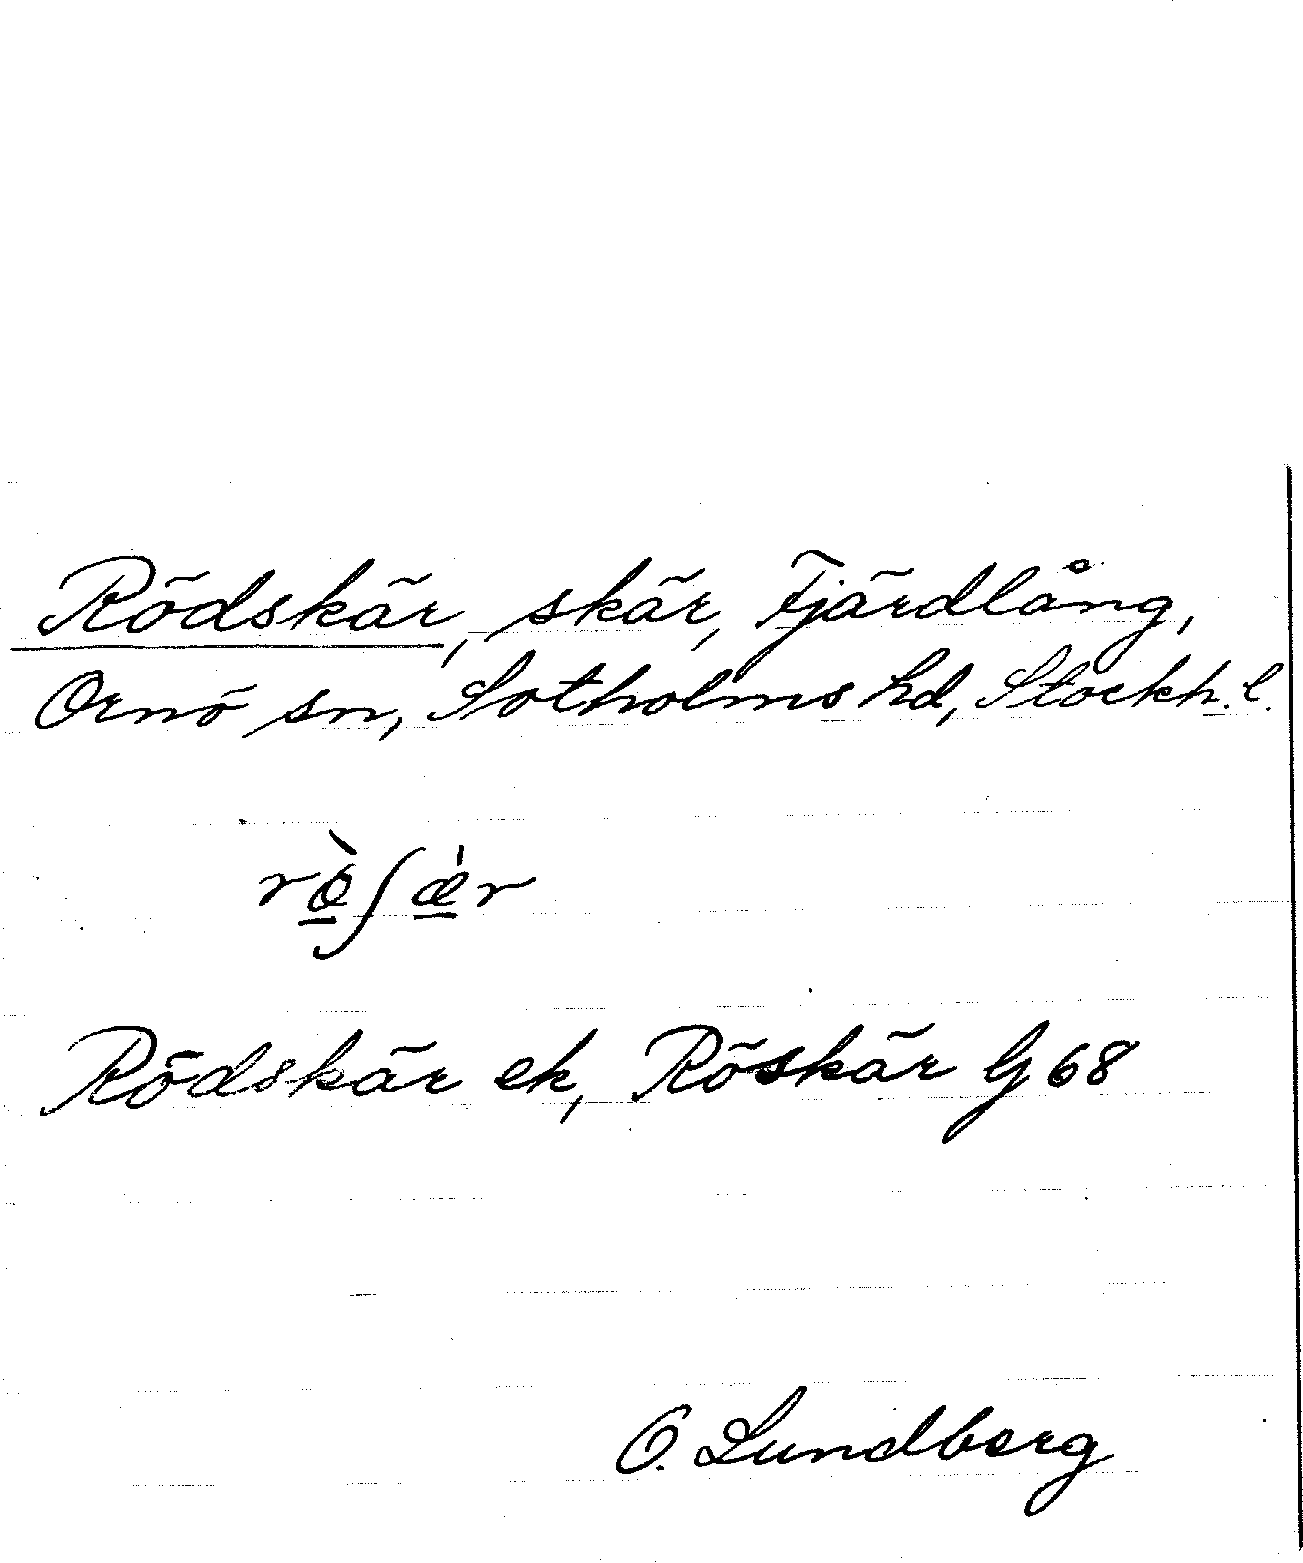 Rödskär, skär, Fjärdlång,
Ornö sn, Sotholms hd, Stockh. l.
rö̀ʃæ̀r
Rödskär ek, Röskär G 68
O. Lundberg